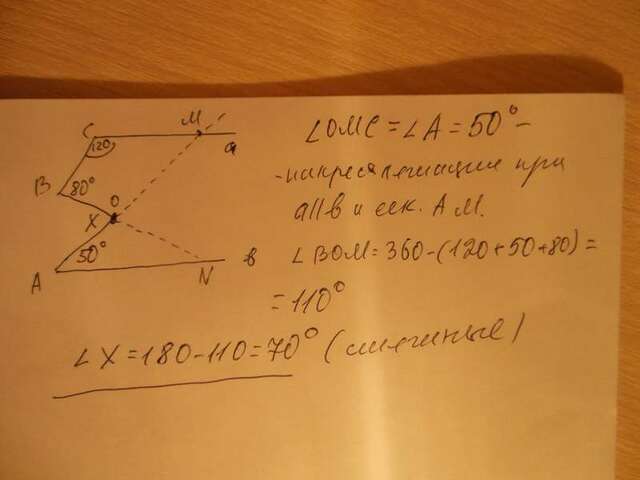 M
C
120
a
B
80°
O
X
50°
A
N
в
∠OMC = ∠A = 50° –
- накрест лежащие при
a || в и сек. AM.
∠BOM = 360-(120+50+80) =
= 110°
∠X = 180-110 = 70° (смежные)